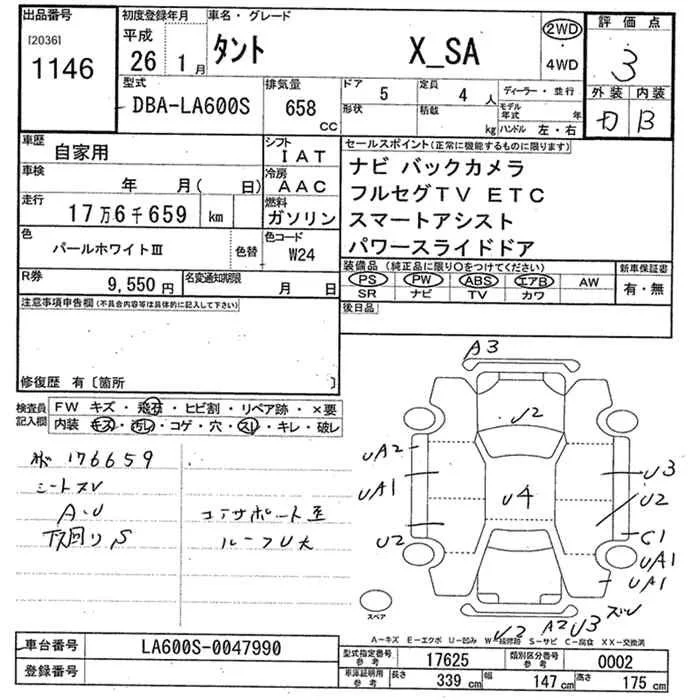 出品番号
[2036]
1146
初度登録年月
平成
26 年 1 月
車名・グレード
タント X_SA
2WD
・
4WD
評価点
3
外装 内装
B
型式
DBA-LA600S
排気量
658
CC
ドア
5
形状
定員
4 人
積載
kg
ディーラー・並行
モデル年式 年
ハンドル 左・右
車歴
自家用
車検
年 月( 日)
走行
17万6千659 km
シフト
IAT
冷房
AAC
燃料
ガソリン
色
パールホワイトⅢ
色替
色コード
W24
R券
9,550円
名変通知期限
月 日
セールスポイント(正常に機能するものに限ります)
ナビ バックカメラ
フルセグTV ETC
スマートアシスト
パワースライドドア
装備品(純正品に限り○をつけてください)
PS PW ABS エアB AW
SR ナビ TV カワ
新車保証書
有・無
後日品
注意事項申告欄(不具合内容等は具体的に記入して下さい)
修復歴 有〔箇所 〕
検査員記入欄
FW キズ・飛石・ヒビ割・リペア跡・×要
内装 キズ・汚レ・コゲ・穴・スレ・キレ・破レ
176659
シートスレ
A・U
下回りS
コアサポート歪
ルーフU大
A3
U2
UA2
UA1
U2
U4
U3
U2
C1
UA1
UA1
スレ
U2
A2 U3
スペア
A-キズ E-エクボ U-凹み W-補修跡 S-サビ C-腐食 XX-交換済
車台番号
LA600S-0047990
登録番号
型式指定番号 参考
17625
類別区分番号 参考
0002
車庫証明用 参考
長さ 339 cm 幅 147 cm 高さ 175 cm